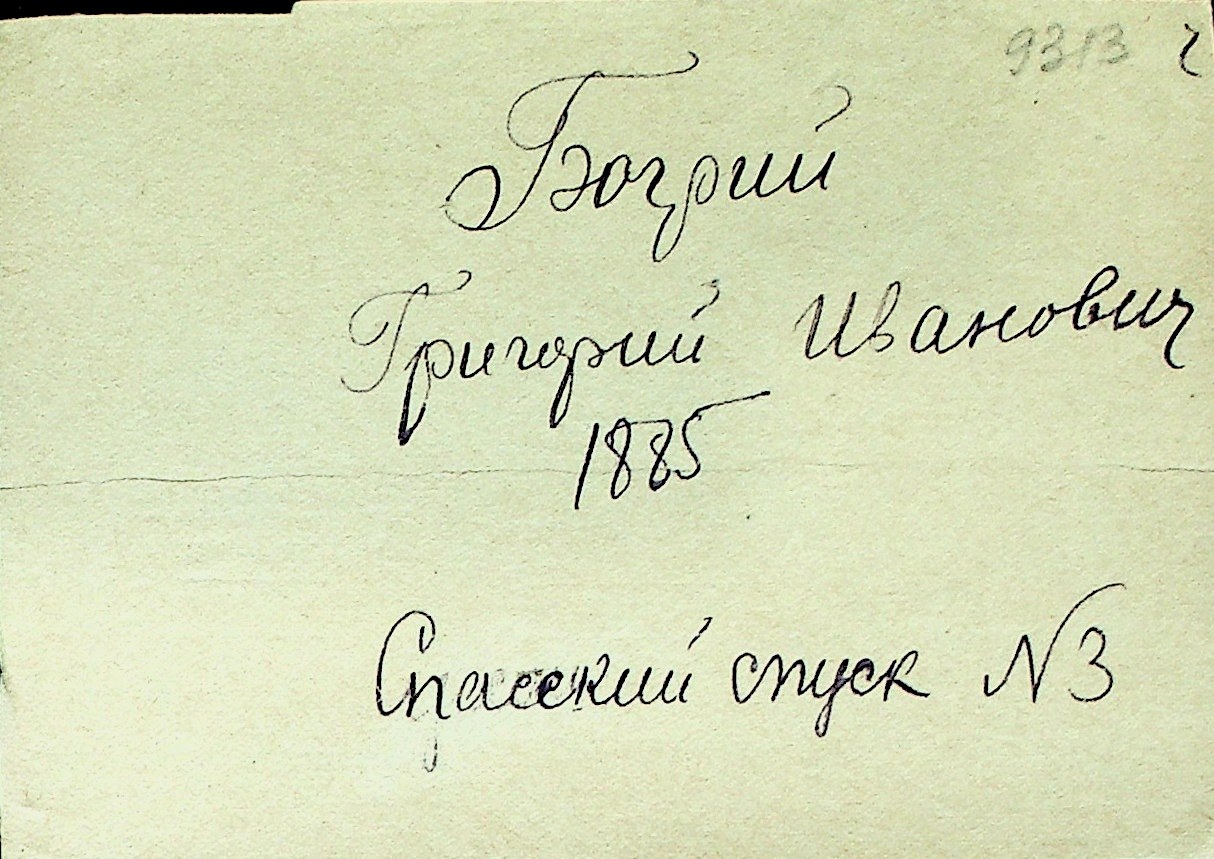 9313 ч
Богрий
Григорий Иванович
1885
Спасский спуск N3